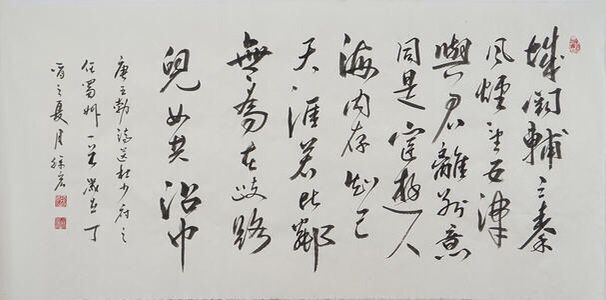 城闕輔三秦
風煙望五津
與君離別意
同是宦遊人
海內存知己
天涯若比鄰
無為在歧路
兒女共沾巾
唐王勃詩送杜少府之
任蜀州一首歲在丁
酉之夏月